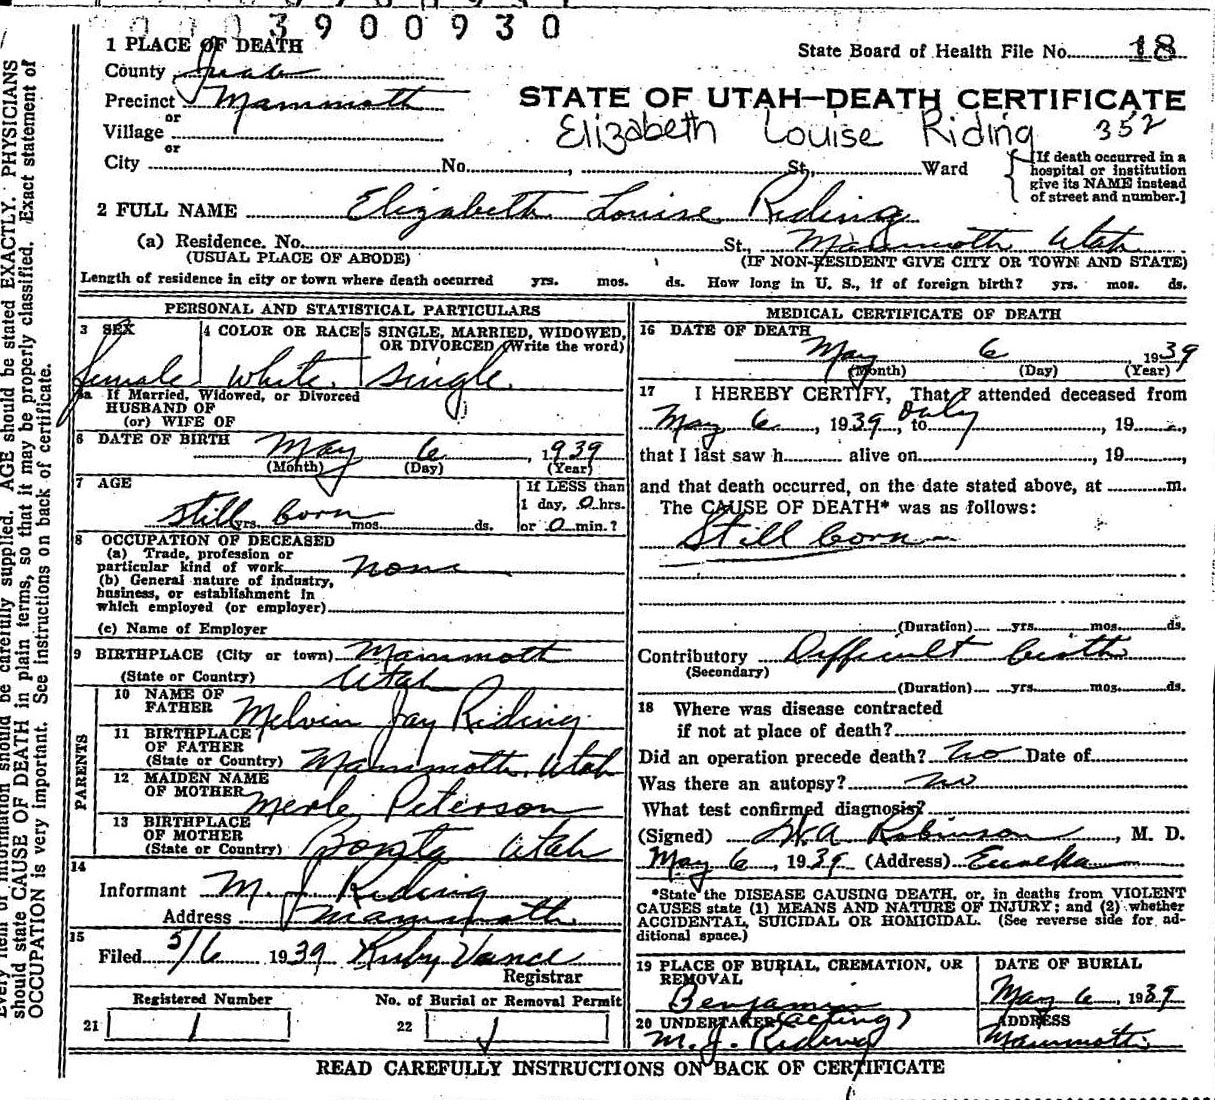 3900930
1 PLACE OF DEATH
State Board of Health File No. 18
County Juab
Precinct Mammoth
STATE OF UTAH—DEATH CERTIFICATE
or
Village
Elizabeth Louise Riding 352
or
City No. , St., Ward
[If death occurred in a hospital or institution give its NAME instead of street and number.]
2 FULL NAME Elizabeth Louise Riding
(a) Residence. No. St., Mammoth Utah
(USUAL PLACE OF ABODE) (IF NON-RESIDENT GIVE CITY OR TOWN AND STATE)
Length of residence in city or town where death occurred yrs. mos. ds. How long in U. S., if of foreign birth? yrs. mos. ds.
PERSONAL AND STATISTICAL PARTICULARS
3 SEX
female
4 COLOR OR RACE
White
5 SINGLE, MARRIED, WIDOWED, OR DIVORCED (Write the word)
Single
5a If Married, Widowed, or Divorced
HUSBAND OF
(or) WIFE OF
6 DATE OF BIRTH May 6, 1939
(Month) (Day) (Year)
7 AGE
Still born
yrs. mos. ds.
If LESS than
1 day, 0 hrs.
or 0 min.?
8 OCCUPATION OF DECEASED
(a) Trade, profession or
particular kind of work none
(b) General nature of industry,
business, or establishment in
which employed (or employer)
(c) Name of Employer
9 BIRTHPLACE (City or town) Mammoth
(State or Country) Utah
PARENTS
10 NAME OF FATHER Melvin Jay Riding
11 BIRTHPLACE OF FATHER
(State or Country) Mammoth, Utah
12 MAIDEN NAME OF MOTHER Merle Peterson
13 BIRTHPLACE OF MOTHER
(State or Country) Utah
14
Informant M. J. Riding
Address Mammoth
15
Filed 5/6 1939 Ruby Vance
Registrar
Registered Number
21 1
No. of Burial or Removal Permit
22 1
MEDICAL CERTIFICATE OF DEATH
16 DATE OF DEATH
May 6 1939
(Month) (Day) (Year)
17 I HEREBY CERTIFY, That I attended deceased from
May 6, 1939, to only, 19 ,
that I last saw h alive on , 19 ,
and that death occurred, on the date stated above, at m.
The CAUSE OF DEATH* was as follows:
Still born
(Duration) yrs. mos. ds.
Contributory Difficult birth
(Secondary)
(Duration) yrs. mos. ds.
18 Where was disease contracted
if not at place of death?
Did an operation precede death? no Date of
Was there an autopsy? no
What test confirmed diagnosis?
(Signed) Robinson, M. D.
May 6, 1939 (Address) Eureka
*State the DISEASE CAUSING DEATH, or, in deaths from VIOLENT
CAUSES state (1) MEANS AND NATURE OF INJURY; and (2) whether
ACCIDENTAL, SUICIDAL OR HOMICIDAL. (See reverse side for ad-
ditional space.)
19 PLACE OF BURIAL, CREMATION, OR REMOVAL
Benjamin
DATE OF BURIAL
May 6, 1939
20 UNDERTAKER (acting)
M. J. Riding
ADDRESS
Mammoth
READ CAREFULLY INSTRUCTIONS ON BACK OF CERTIFICATE
be carefully supplied. AGE should be stated EXACTLY. PHYSICIANS
should state CAUSE OF DEATH in plain terms, so that it may be properly classified. Exact statement of
OCCUPATION is very important. See instructions on back of certificate.